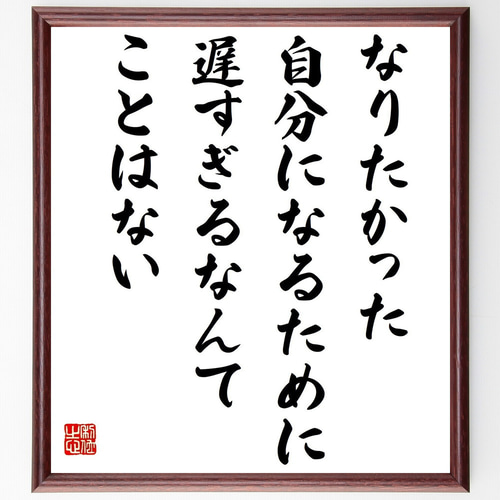 なりたかった
自分になるために
遅すぎるなんて
ことはない